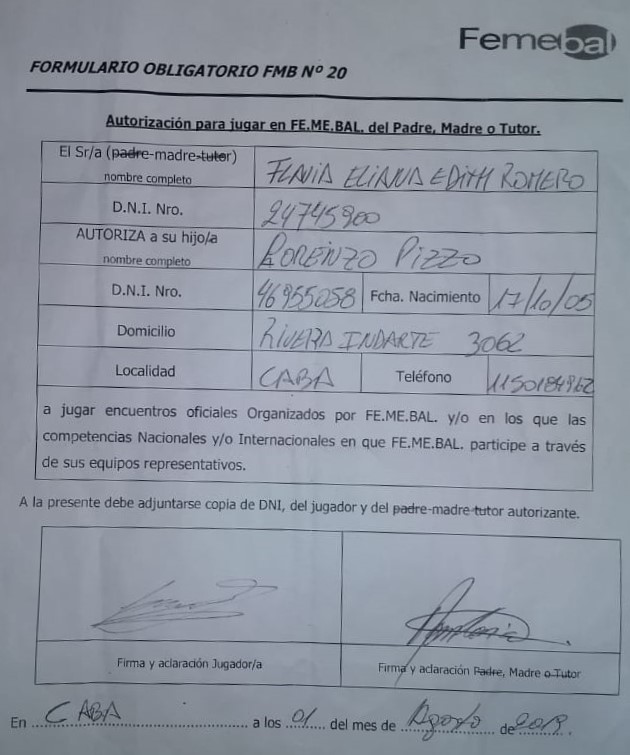 Femebal
FORMULARIO OBLIGATORIO FMB Nº 20
Autorización para jugar en FE.ME.BAL. del Padre, Madre o Tutor.
El Sr/a (padre-madre-tutor) FLAVIA ELIANA EDITH ROMERO
nombre completo
D.N.I. Nro. 24745900
AUTORIZA a su hijo/a LORENZO PIZZO
nombre completo
D.N.I. Nro. 46955058 Fcha. Nacimiento 17/10/05
Domicilio RIVERA INDARTE 3062
Localidad CABA Teléfono 1150184962
a jugar encuentros oficiales Organizados por FE.ME.BAL. y/o en los que las
competencias Nacionales y/o Internacionales en que FE.ME.BAL. participe a través
de sus equipos representativos.
A la presente debe adjuntarse copia de DNI, del jugador y del padre-madre-tutor autorizante.
Firma y aclaración Jugador/a Firma y aclaración Padre, Madre o Tutor
En CABA a los 01 del mes de Agosto de 2019.